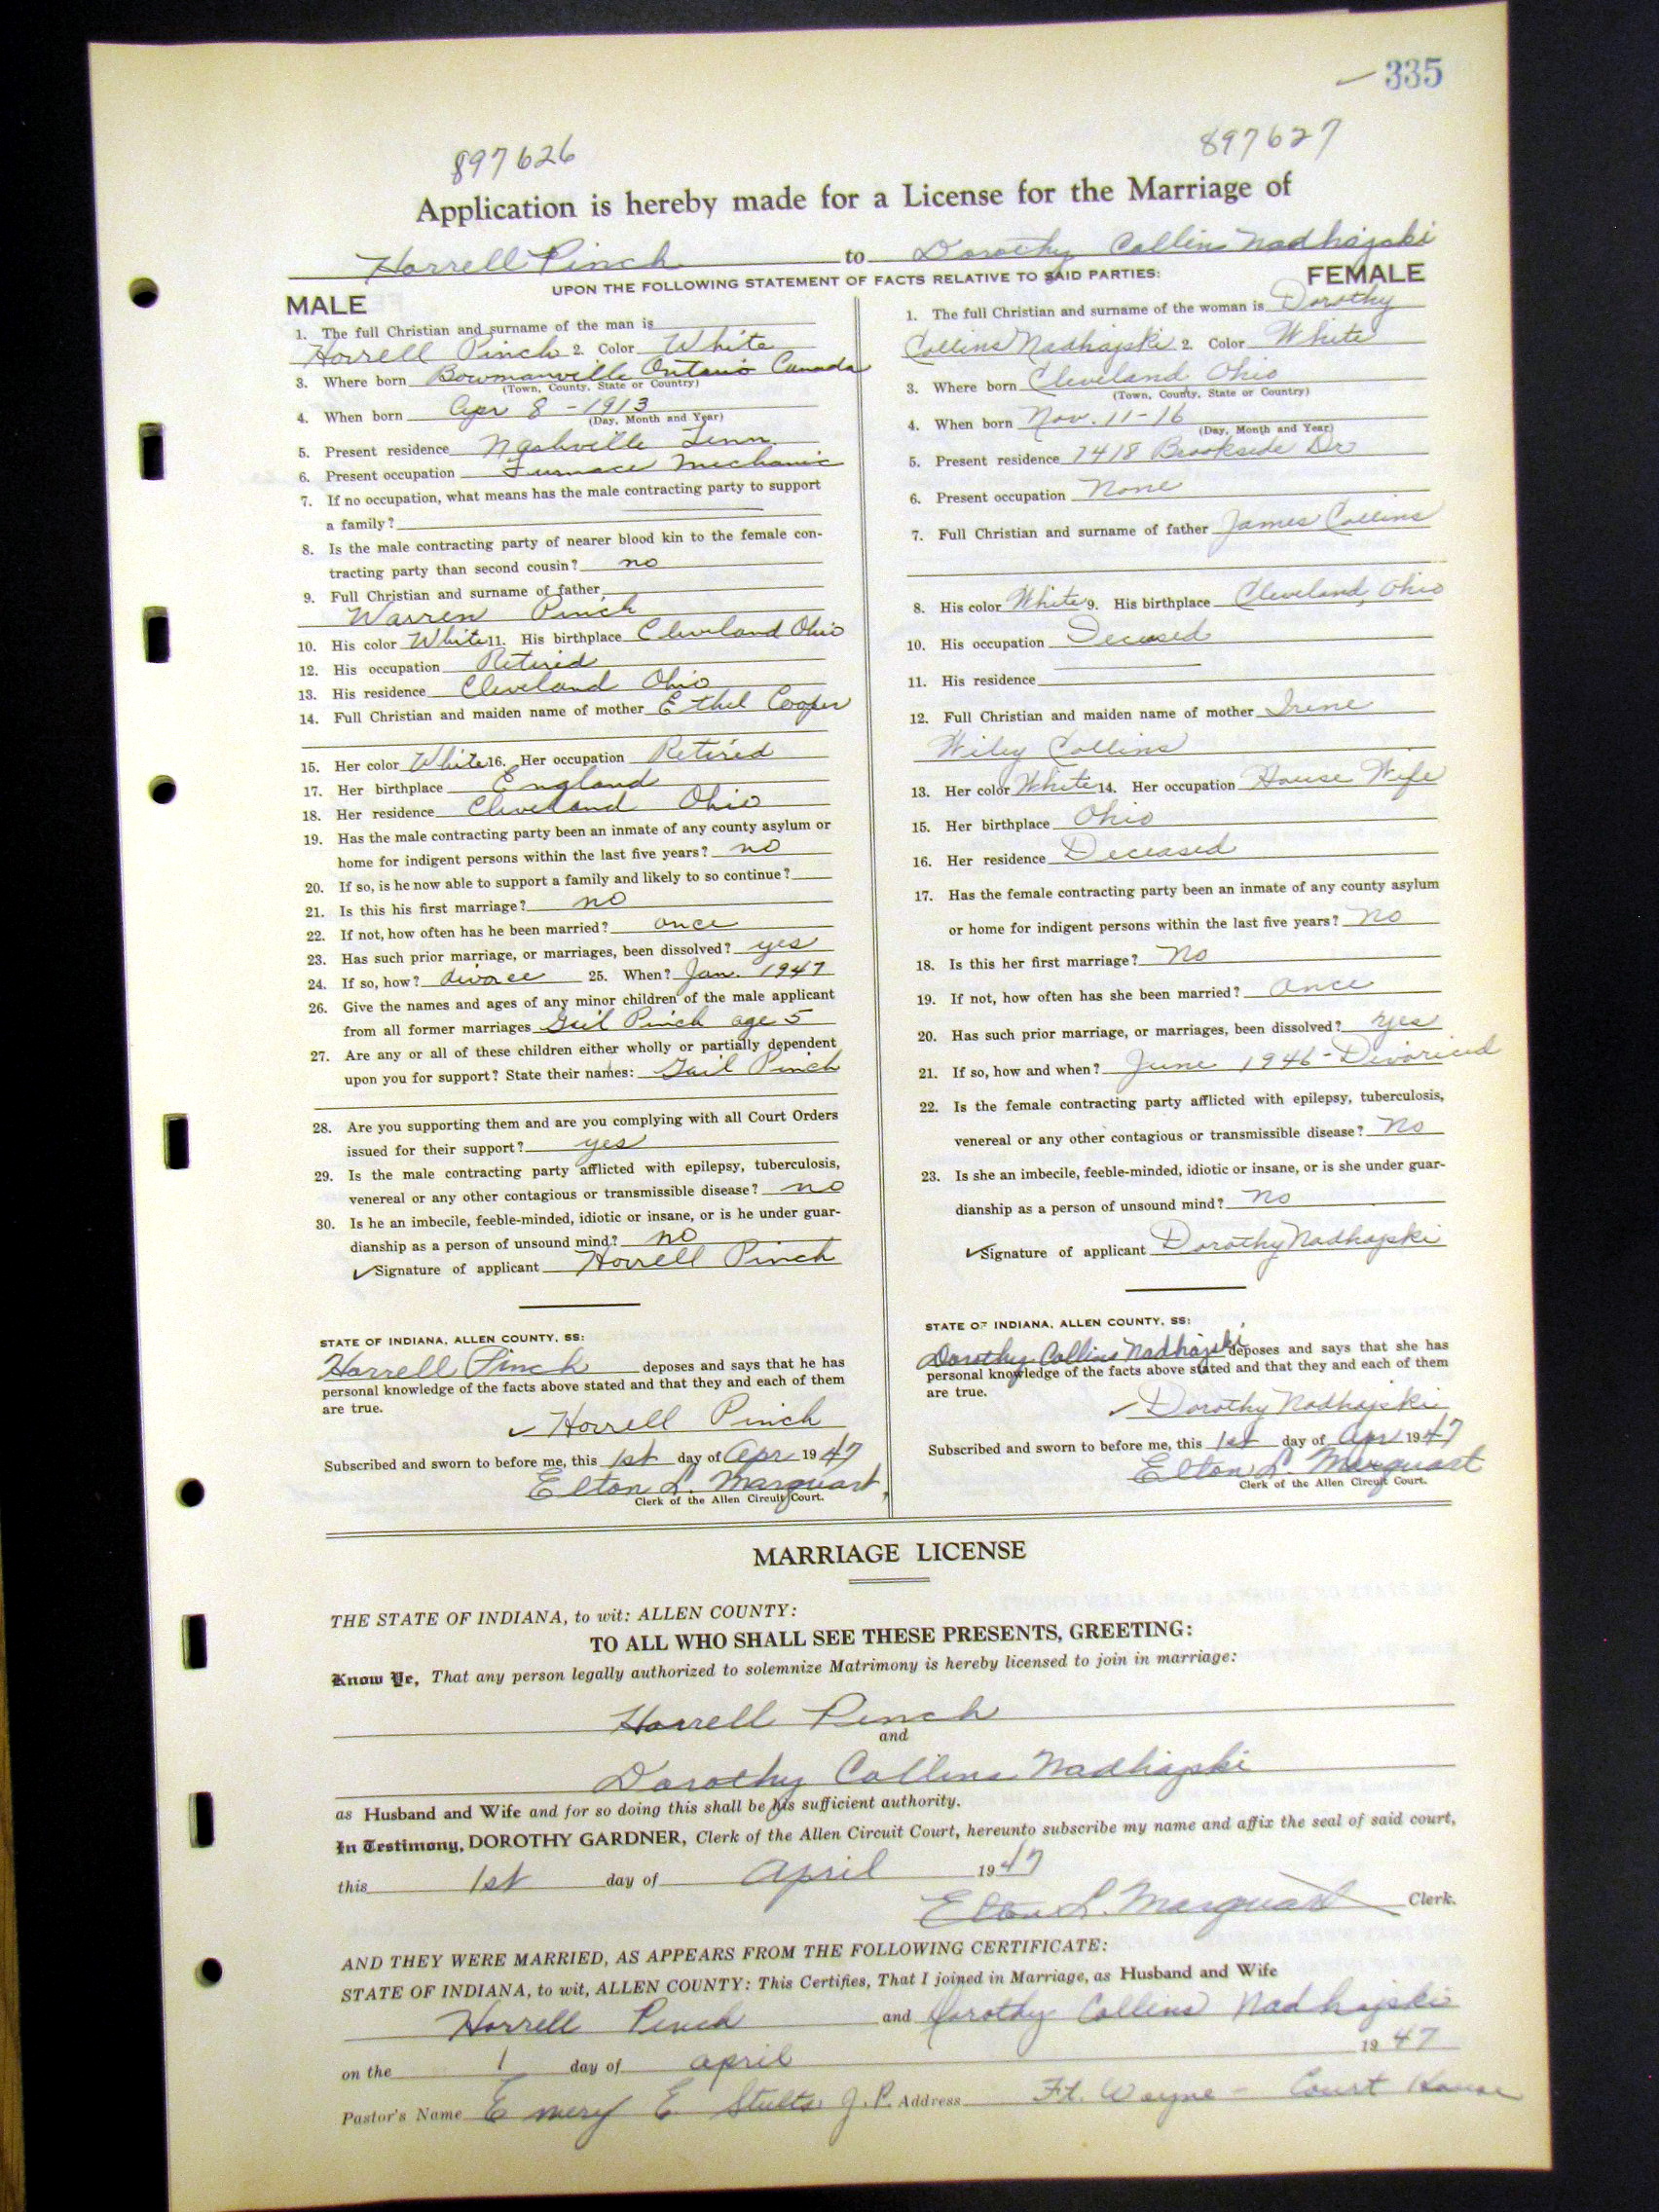 335
897626
897627
Application is hereby made for a License for the Marriage of
Horrell Pinch to Dorothy Collins Nadhajski
UPON THE FOLLOWING STATEMENT OF FACTS RELATIVE TO SAID PARTIES:
MALE
1. The full Christian and surname of the man is
Horrell Pinch 2. Color White
3. Where born Bowmanville Ontario Canada
(Town, County, State or Country)
4. When born Apr 8 - 1913
(Day, Month and Year)
5. Present residence Nashville Tenn.
6. Present occupation Furnace Mechanic
7. If no occupation, what means has the male contracting party to support
a family?
8. Is the male contracting party of nearer blood kin to the female con-
tracting party than second cousin? no
9. Full Christian and surname of father
Warren Pinch
10. His color White 11. His birthplace Cleveland Ohio
12. His occupation Retired
13. His residence Cleveland Ohio
14. Full Christian and maiden name of mother Ethel Cooper
15. Her color White 16. Her occupation Retired
17. Her birthplace England
18. Her residence Cleveland Ohio
19. Has the male contracting party been an inmate of any county asylum or
home for indigent persons within the last five years? no
20. If so, is he now able to support a family and likely to so continue?
21. Is this his first marriage? no
22. If not, how often has he been married? once
23. Has such prior marriage, or marriages, been dissolved? yes
24. If so, how? divorce 25. When? Jan. 1947
26. Give the names and ages of any minor children of the male applicant
from all former marriages Gail Pinch age 5
27. Are any or all of these children either wholly or partially dependent
upon you for support? State their names: Gail Pinch
28. Are you supporting them and are you complying with all Court Orders
issued for their support? yes
29. Is the male contracting party afflicted with epilepsy, tuberculosis,
venereal or any other contagious or transmissible disease? no
30. Is he an imbecile, feeble-minded, idiotic or insane, or is he under guar-
dianship as a person of unsound mind? no
✓ Signature of applicant Horrell Pinch
STATE OF INDIANA, ALLEN COUNTY, SS:
Horrell Pinch deposes and says that he has
personal knowledge of the facts above stated and that they and each of them
are true.
✓ Horrell Pinch
Subscribed and sworn to before me, this 1st day of Apr 1947
Elton L. Marquart,
Clerk of the Allen Circuit Court.
FEMALE
1. The full Christian and surname of the woman is Dorothy
Collins Nadhajski 2. Color White
3. Where born Cleveland Ohio
(Town, County, State or Country)
4. When born Nov. 11-16
(Day, Month and Year)
5. Present residence 7418 Brookside Dr
6. Present occupation None
7. Full Christian and surname of father James Collins
8. His color White 9. His birthplace Cleveland, Ohio
10. His occupation Deceased
11. His residence
12. Full Christian and maiden name of mother Irene
Wiley Collins
13. Her color White 14. Her occupation House Wife
15. Her birthplace Ohio
16. Her residence Deceased
17. Has the female contracting party been an inmate of any county asylum
or home for indigent persons within the last five years? No
18. Is this her first marriage? No
19. If not, how often has she been married? once
20. Has such prior marriage, or marriages, been dissolved? yes
21. If so, how and when? June 1946 - Divoriced
22. Is the female contracting party afflicted with epilepsy, tuberculosis,
venereal or any other contagious or transmissible disease? No
23. Is she an imbecile, feeble-minded, idiotic or insane, or is she under guar-
dianship as a person of unsound mind? No
✓ Signature of applicant Dorothy Nadhajski
STATE OF INDIANA, ALLEN COUNTY, SS:
Dorothy Collins Nadhajski deposes and says that she has
personal knowledge of the facts above stated and that they and each of them
are true.
✓ Dorothy Nadhajski
Subscribed and sworn to before me, this 1st day of Apr 1947
Elton L. Marquart
Clerk of the Allen Circuit Court.
MARRIAGE LICENSE
THE STATE OF INDIANA, to wit: ALLEN COUNTY:
TO ALL WHO SHALL SEE THESE PRESENTS, GREETING:
Know Ye, That any person legally authorized to solemnize Matrimony is hereby licensed to join in marriage:
Horrell Pinch
and
Dorothy Collins Nadhajski
as Husband and Wife and for so doing this shall be his sufficient authority.
In Testimony, DOROTHY GARDNER, Clerk of the Allen Circuit Court, hereunto subscribe my name and affix the seal of said court,
this 1st day of April 1947
Elton L. Marquart Clerk.
AND THEY WERE MARRIED, AS APPEARS FROM THE FOLLOWING CERTIFICATE:
STATE OF INDIANA, to wit, ALLEN COUNTY: This Certifies, That I joined in Marriage, as Husband and Wife
Horrell Pinch and Dorothy Collins Nadhajski
on the 1 day of april 1947
Pastor's Name Emery E. Stults J.P. Address Ft. Wayne - Court House